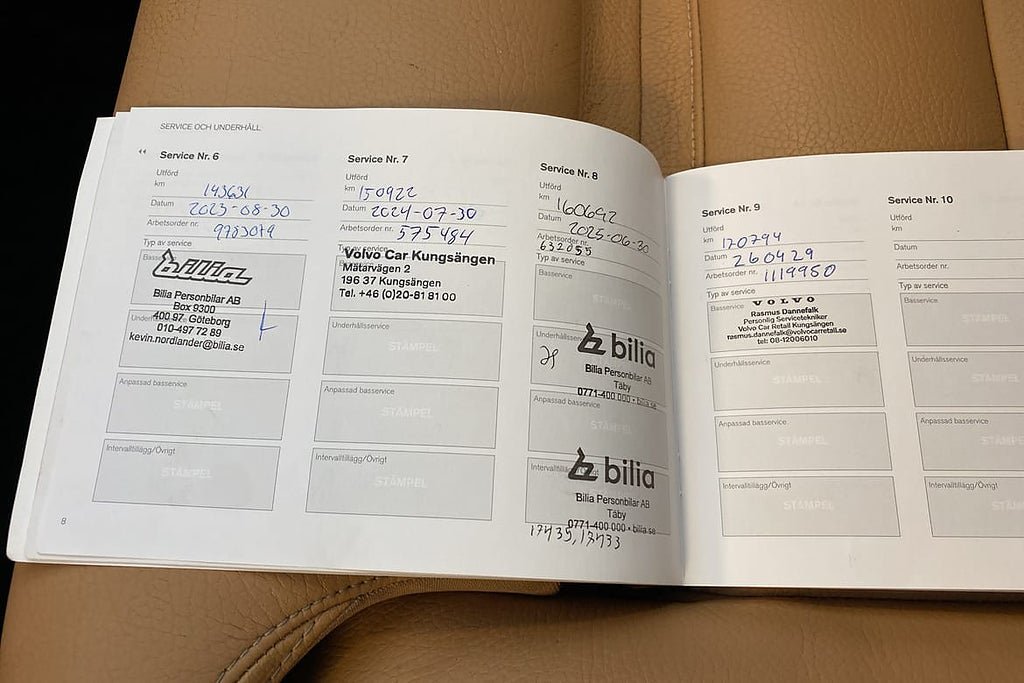 SERVICE OCH UNDERHÅLL
Service Nr. 6
Utförd
km 143631
Datum 2023-08-30
Arbetsorder nr. 9783079
Typ av service
bilia
Bilia Personbilar AB
Box 9300
400 97 Göteborg
010-497 72 89
kevin.nordlander@bilia.se
Anpassad basservice
STÄMPEL
Intervalltillägg/Övrigt
STÄMPEL
8
Service Nr. 7
Utförd
km 150922
Datum 2024-07-30
Arbetsorder nr. 575484
Typ av service
Volvo Car Kungsängen
Mätarvägen 2
196 37 Kungsängen
Tel. +46 (0)20-81 81 00
Underhållsservice
STÄMPEL
Anpassad basservice
STÄMPEL
Intervalltillägg/Övrigt
STÄMPEL
Service Nr. 8
Utförd
km 160692
Datum 2025-06-30
Arbetsorder nr.
632055
Typ av service
Basservice
STÄMPEL
Underhållsservice
bilia
Bilia Personbilar AB
Täby
0771-400 000 • bilia.se
Anpassad basservice
STÄMPEL
bilia
Bilia Personbilar AB
Täby
0771-400 000 • bilia.se
17435, 17433
Service Nr. 9
Utförd
km 170794
Datum 260429
Arbetsorder nr. 1119950
Typ av service
Basservice
VOLVO
Rasmus Dannefalk
Personlig Servicetekniker
Volvo Car Retail Kungsängen
rasmus.dannefalk@volvocarretail.se
tel: 08-12006010
Underhållsservice
STÄMPEL
Anpassad basservice
STÄMPEL
Intervalltillägg/Övrigt
STÄMPEL
Service Nr. 10
Utförd
km
Datum
Arbetsorder nr.
Typ av service
Basservice
Underhållsservice
Anpassad basservice
Intervalltillägg/Övrigt